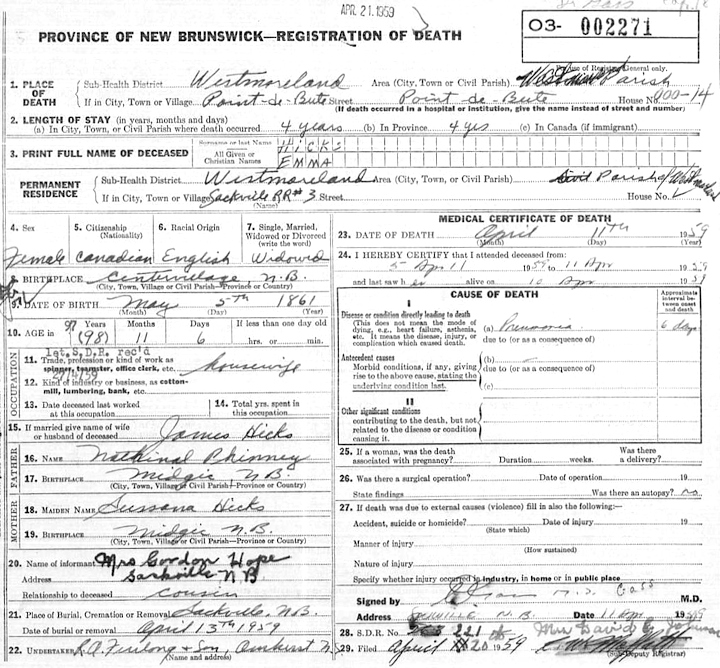 APR 21 1959
PROVINCE OF NEW BRUNSWICK—REGISTRATION OF DEATH
03- 002271
Use of Registrar General only.
1. PLACE OF DEATH
Sub-Health District Westmoreland Area (City, Town or Civil Parish) Parish
If in City, Town or Village Point-de-Bute Street Point-de-Bute House No.
(If death occurred in a hospital or institution, give the name instead of street and number)
2. LENGTH OF STAY (in years, months and days)
(a) In City, Town, or Civil Parish where death occurred 4 years (b) In Province 4 yrs (c) In Canada (if immigrant)
3. PRINT FULL NAME OF DECEASED
Surname or last Name HICKS
All Given or Christian Names EMMA
PERMANENT RESIDENCE
Sub-Health District Westmoreland Area (City, Town or Civil Parish) Civil Parish of
If in City, Town or Village Sackville RR#3 Street House No.
(Name)
4. Sex Female
5. Citizenship (Nationality) Canadian
6. Racial Origin English
7. Single, Married, Widowed or Divorced (write the word) Widowed
8. BIRTHPLACE N.B.
(City, Town, Village or Civil Parish—Province or Country)
9. DATE OF BIRTH May 5th 1861
(Month) (Day) (Year)
10. AGE in 97 Years (98) Months 11 Days 6 If less than one day old hrs. or min.
1st. S.D.R. rec'd
OCCUPATION
11. Trade, profession or kind of work as spinner, teamster, office clerk, etc. Housewife
12. Kind of industry or business, as cotton-mill, lumbering, bank, etc.
13. Date deceased last worked at this occupation
14. Total yrs. spent in this occupation
15. If married give name of wife or husband of deceased James Hicks
FATHER
16. NAME Phinney
17. BIRTHPLACE Midgic N.B.
(City, Town, Village or Civil Parish—Province or Country)
MOTHER
18. MAIDEN NAME Sussana Hicks
19. BIRTHPLACE Midgic N.B.
(City, Town, Village or Civil Parish—Province or Country)
20. Name of informant Mrs Gordon Hope
Address Sackville N B
Relationship to deceased cousin
21. Place of Burial, Cremation or Removal Sackville, N.B.
Date of burial or removal April 13th 1959
22. UNDERTAKER Furlong & Son, Amherst N.
(Name and address)
MEDICAL CERTIFICATE OF DEATH
23. DATE OF DEATH April 11th 1959
(Month) (Day) (Year)
24. I HEREBY CERTIFY that I attended deceased from:
5 Apr 1959 to 11 Apr 1959
and last saw her alive on 10 Apr 1959
CAUSE OF DEATH
Approximate interval between onset and death
I
Disease or condition directly leading to death
(This does not mean the mode of dying, e.g., heart failure, asthenia, etc. It means the disease, injury, or complication which caused death.
(a) Pneumonia 6 days
due to (or as a consequence of)
Antecedent causes
Morbid conditions, if any, giving rise to the above cause, stating the underlying condition last.
(b)
due to (or as a consequence of)
(c)
II
Other significant conditions
contributing to the death, but not related to the disease or condition causing it.
25. If a woman, was the death associated with pregnancy? Duration weeks. Was there a delivery?
26. Was there a surgical operation? Date of operation 19
State findings Was there an autopsy? no
27. If death was due to external causes (violence) fill in also the following:—
Accident, suicide or homicide? Date of injury 19
(State which)
Manner of injury
(How sustained)
Nature of injury
Specify whether injury occurred in industry, in home or in public place
Signed by M.D.
Address N.B. Date 11 Apr 1959
28. S.D.R. No. 221 Mrs David
29. Filed April 20 1959
(Sub-Deputy Registrar)